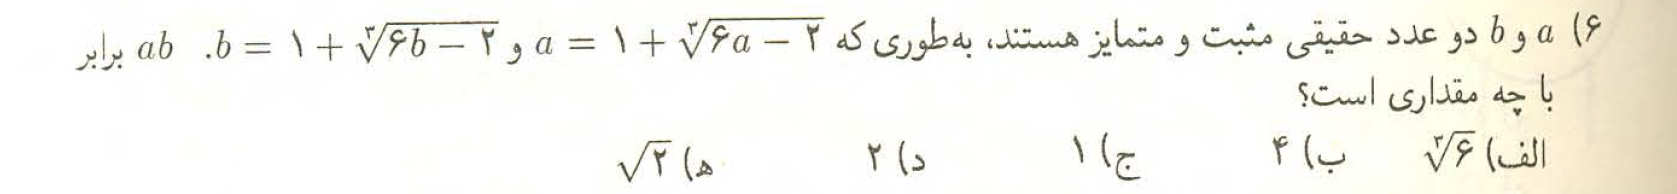 ۶) a و b دو عدد حقیقی مثبت و متمایز هستند، به‌طوری که a = ۱ + ∛(۶a − ۲) و b = ۱ + ∛(۶b − ۲). ab برابر
با چه مقداری است؟
الف) ∛۶ ب) ۴ ج) ۱ د) ۲ ه) √۲